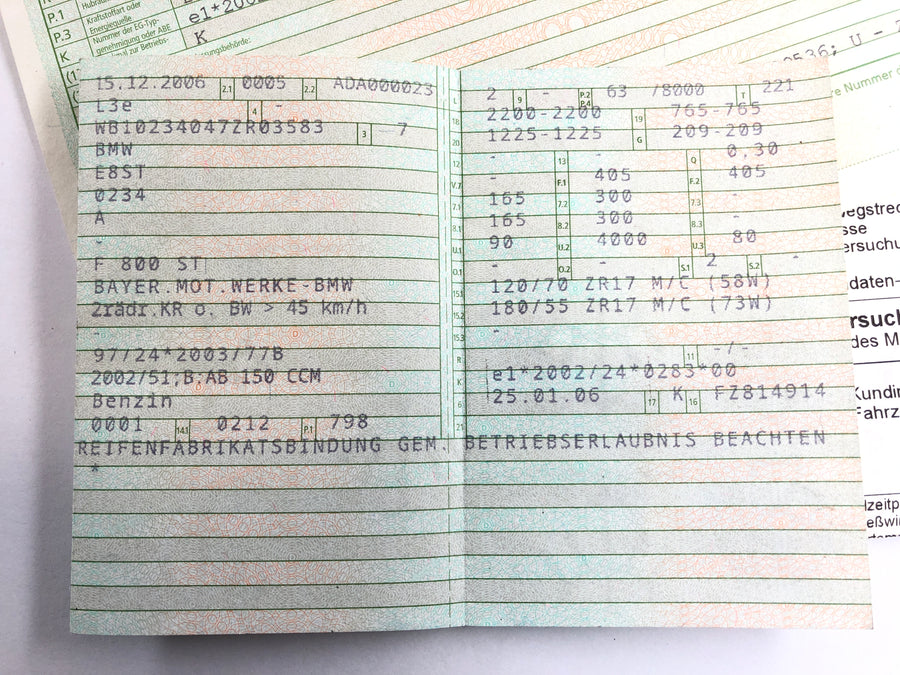 15.12.2006 2.1 0005 2.2 ADA000023
L3e 4 -
WB10234047ZR03583 3 7
BMW
E8ST
0234
A
-
F 800 ST
BAYER.MOT.WERKE-BMW
2rädr.KR o. BW > 45 km/h
97/24*2003/77B
2002/51;B:AB 150 CCM
Benzin
0001 14.1 0212 P.1 798
L 2 9 - P.2 P.4 63 /8000 T 221
18 2200-2200 19 765-765
20 1225-1225 G 209-209
12 - 13 - Q 0,30
V.7 - F.1 405 F.2 405
7.1 165 7.2 300 7.3 -
8.1 165 8.2 300 8.3 -
U.1 90 U.2 4000 U.3 80
O.1 - O.2 - S.1 2 S.2 -
15.1 120/70 ZR17 M/C (58W)
15.2 180/55 ZR17 M/C (73W)
15.3 -
R 11 -/-
K e1*2002/24*0283*00
6 25.01.06 17 K 16 FZ814914
21
REIFENFABRIKATSBINDUNG GEM. BETRIEBSERLAUBNIS BEACHTEN
*
P.1
P.3 Kraftstoffart oder Energiequelle
K Nummer der EG-Typ-
genehmigung oder ABE
K
e Nummer d
daten-
des M
Kundin
Fahrz